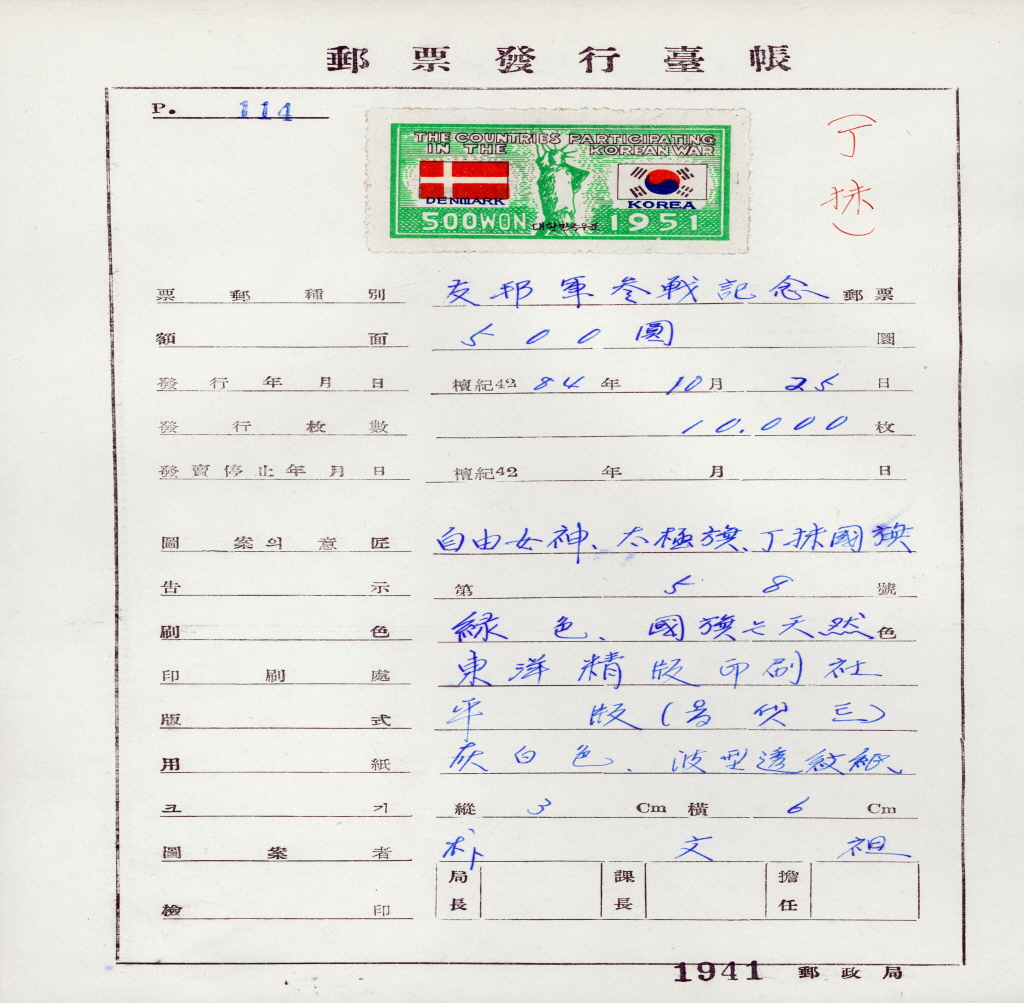 郵票發行臺帳
P. 114
THE COUNTRIES PARTICIPATING
IN THE KOREAN WAR
DENMARK KOREA
500WON 대한민국우표 1951
(丁抹)
票郵種別 友邦軍参戰記念郵票
額面 500圓 圜
發行年月日 檀紀4284年10月25日
發行枚數 10.000枚
發賣停止年月日 檀紀42 年 月 日
圖案의意匠 自由女神、太極旗、丁抹國旗
告示 第58號
刷色 緑色、國旗는天然色
印刷處 東洋精版印刷社
版式 平版
用紙 灰白色、波型透紋紙、
크기 縱3Cm 橫6Cm
圖案者 朴文祖
檢印 局長 課長 擔任
1941 郵政局